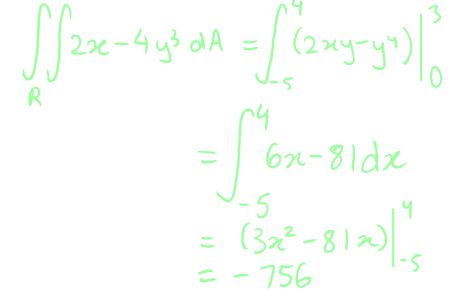 ∬_R 2x - 4y³ dA = ∫_{-5}^{4} (2xy - y⁴)|_0^3
= ∫_{-5}^{4} 6x - 81dx
= (3x² - 81x)|_{-5}^{4}
= -756